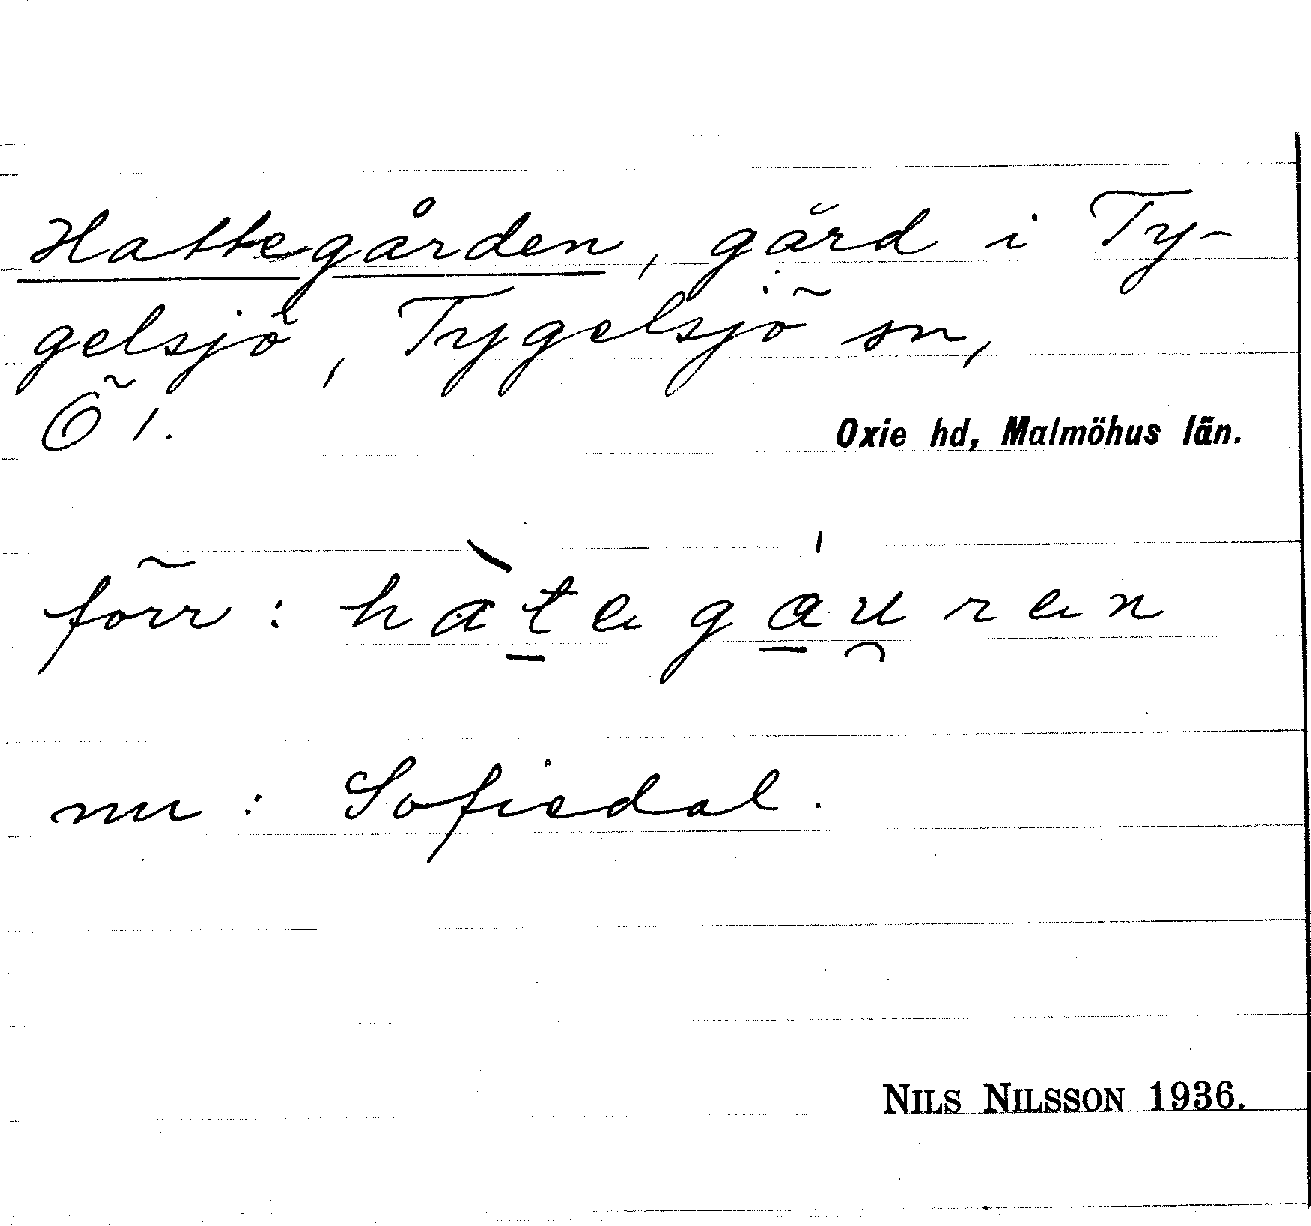 Hattegården, gård i Ty-
gelsjö, Tygelsjö sn,
Ö 1.
Oxie hd, Malmöhus län.
förr: hàtegáuren
nu: Sofiedal.
NILS NILSSON 1936.